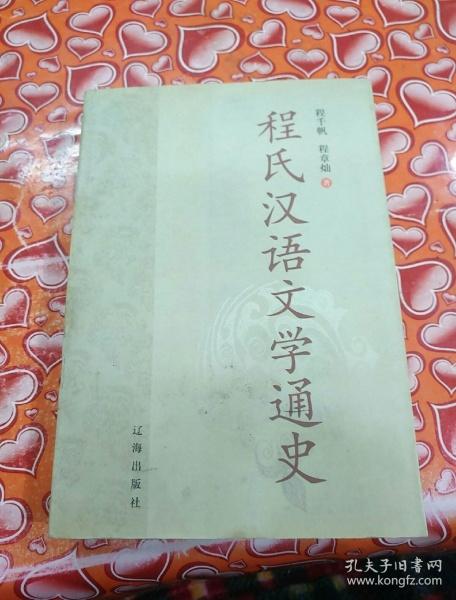 程千帆 程章灿 著
程氏汉语文学通史
辽海出版社
孔夫子旧书网
www.kongfz.com